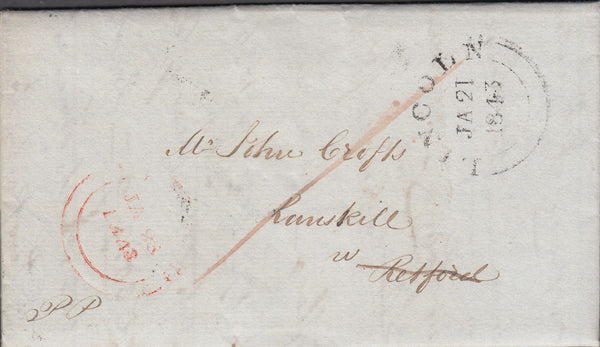 COLN
JA 21
1843
Mr John Crofts
Ranskill
w
Retford
JA 23
1843